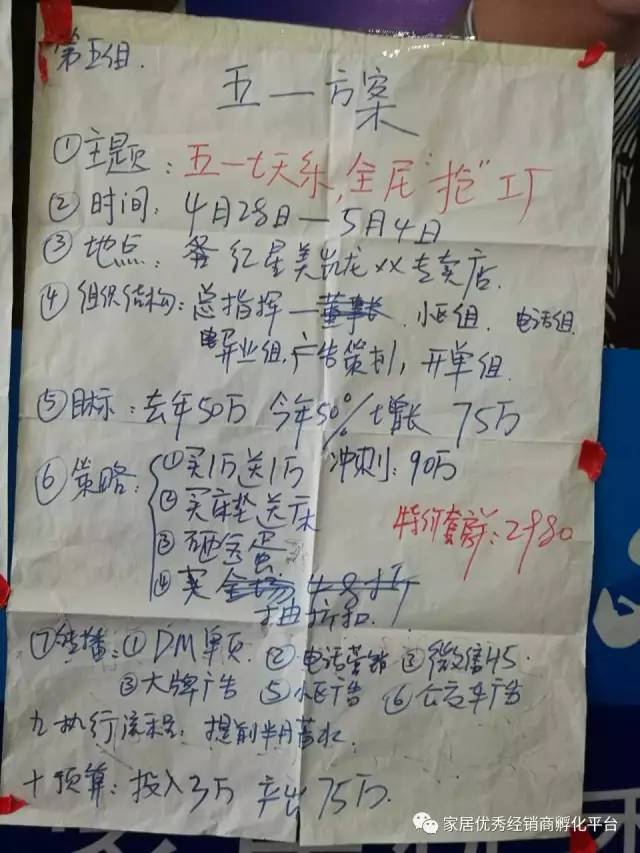 第五组.
五一方案
①主题：五一七天乐,全民"抢"工厂
②时间：4月28日—5月4日
③地点：各红星美凯龙XX专卖店.
④组织结构：总指挥—董事长 小区组. 电话组
异业组,广告策划,开单组.
⑤目标：去年50万 今年50%增长 75万
冲刺：90万
⑥策略：①买1万送1万
②买床垫送床
特价套餐：2980
③砸金蛋
④买全场 折
抽折扣.
⑦传播：①DM单页. ②电话营销 ③微信H5.
③大牌广告 ⑤小区广告 ⑥公交车广告
九执行流程：提前半月蓄水.
十预算：投入3万 产出75万.
家居优秀经销商孵化平台